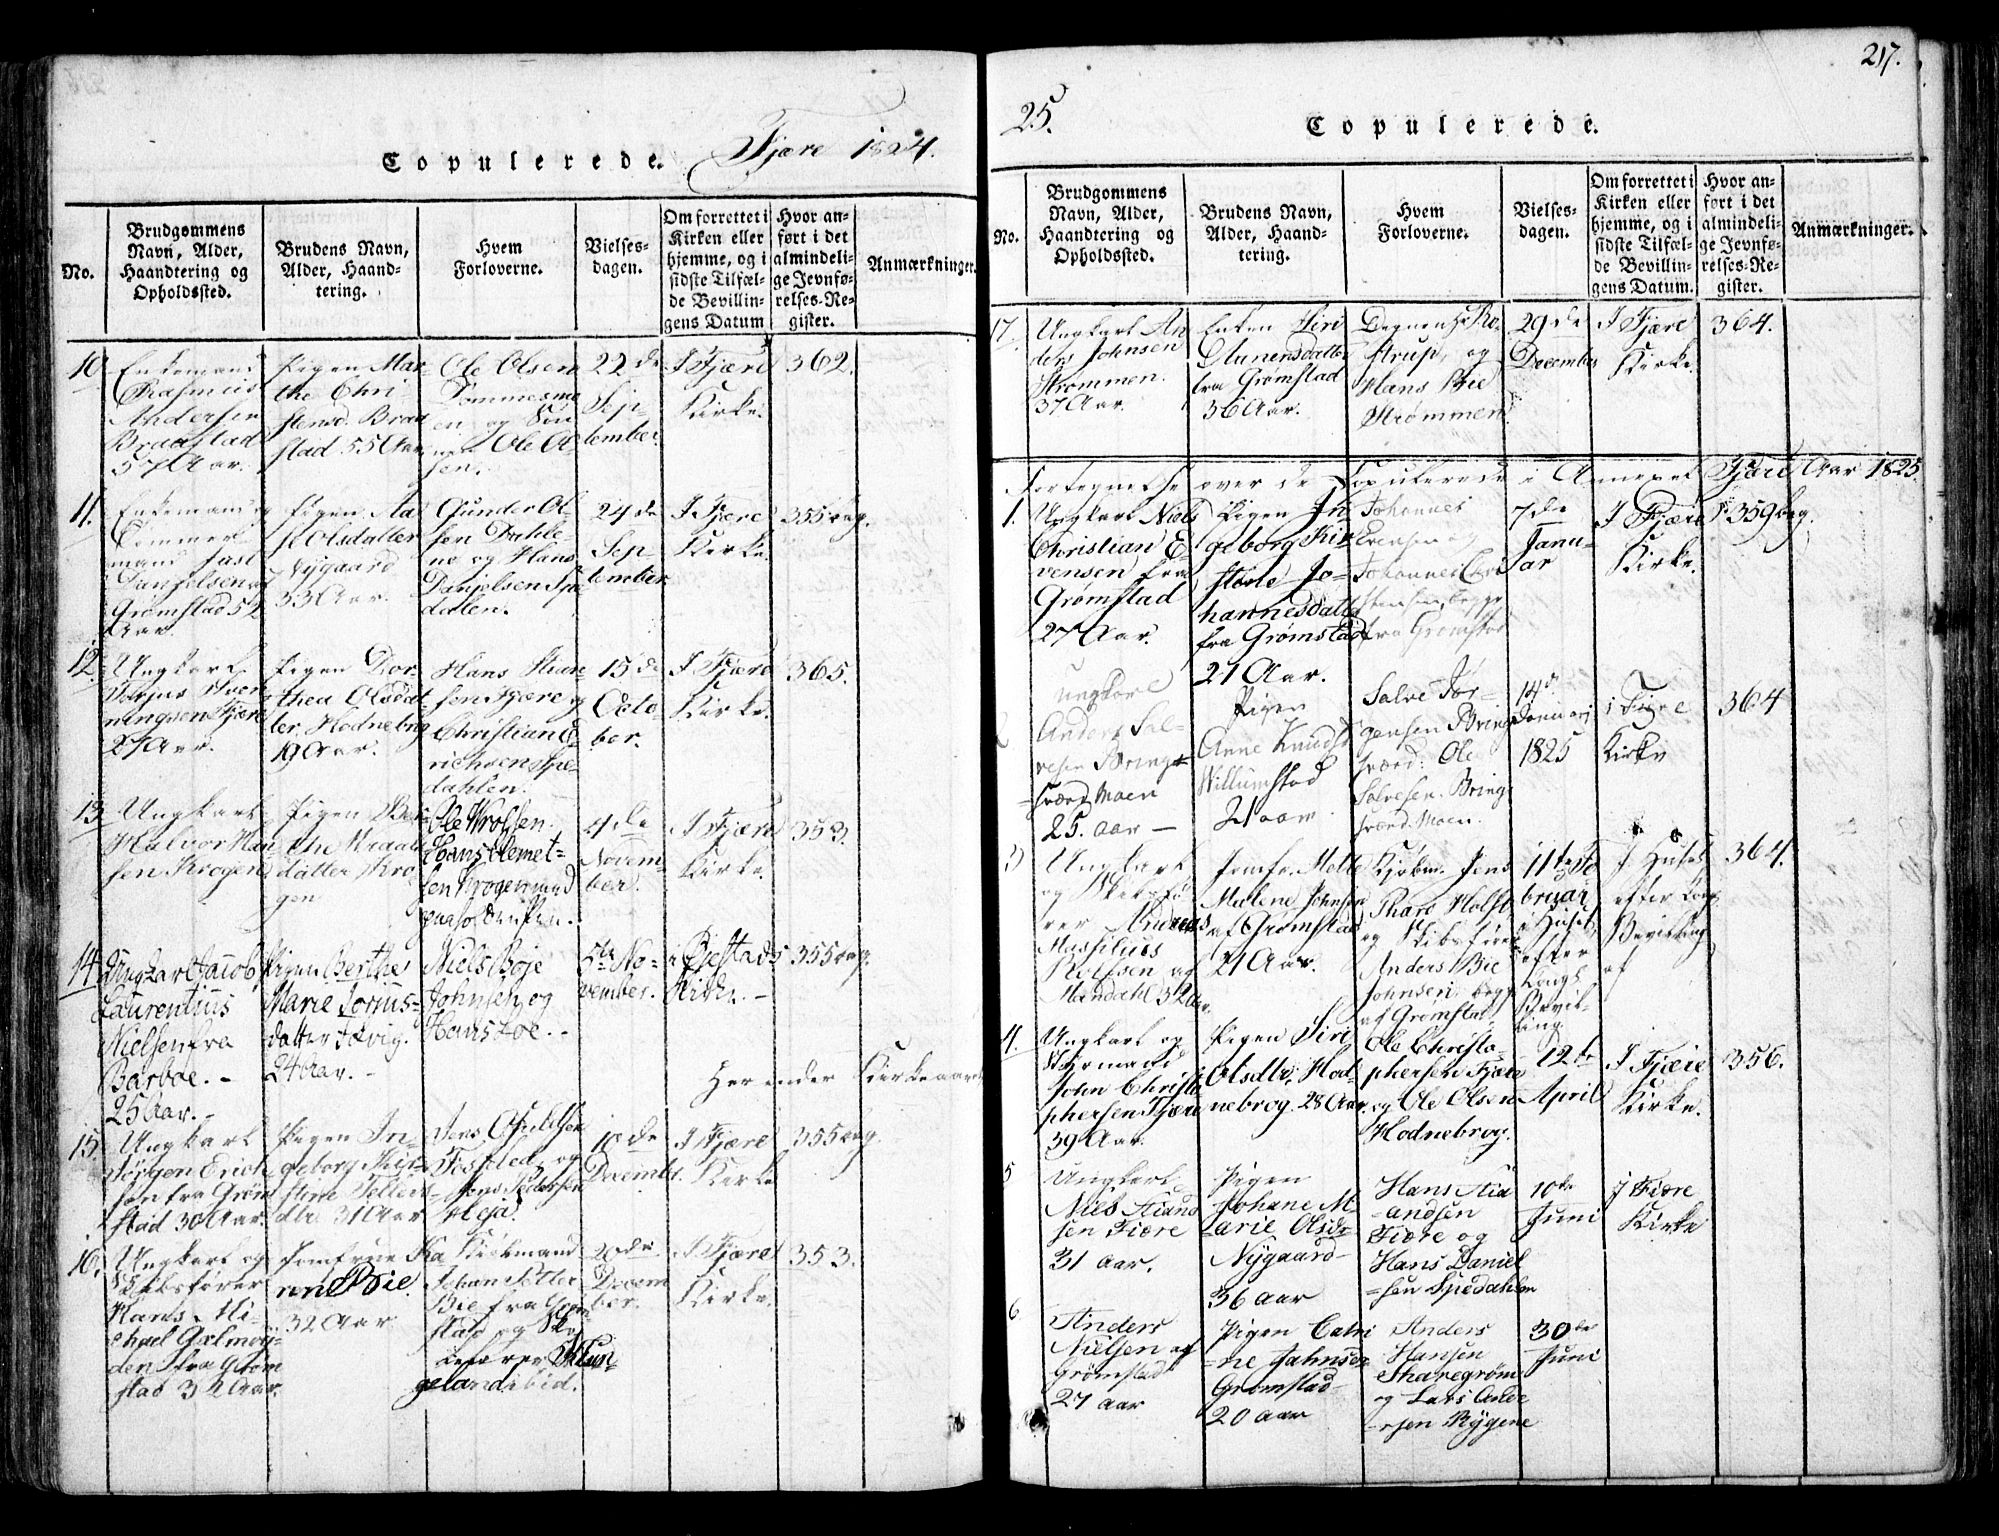 217.
Copulerede. Fjære 1824.
No.
Brudgommens
Navn, Alder,
Haandtering og
Opholdssted.
Brudens Navn,
Alder, Haand-
tering.
Hvem
Forloverne.
Vielses-
dagen.
Om forrettet i
Kirken eller
hjemme, og i
sidste Tilfæl-
de Bevillin-
gens Datum
Hvor an-
ført i det
almindeli-
ge Jevnfø-
relses-Re-
gister.
Anmærkninger.
10
Enkemand
Rasmus
Andersen
Braastad
57 Aar.
Pigen Mar-
the Chri
stensd. Braa
stad 55 Aar.
Ole Olsen
Tømmesmo
en og Søn
Ole Ol
sen.
22de
Sep-
tember.
I Fjære
Kirke.
362.
11.
Enkemand og
mand Just
Danjelsen af
Grømstad 52
Aar.
Pigen Aa
se Olsdatter
Nygaard
33 Aar.
Gunder Ol
sen Dahle
ne og Hans
Danjelsen Spe
dalen.
24de
Sep-
tember
I Fjære
Kirke.
355 bag.
12.
Ungkarl
Torjus Hver
ningsen Fjære
27 Aar.
Pigen Dor-
thea Olsdat
ter Hodnebrog
19 Aar.
Hans Stian
sen Fjære og
Christian E
richsen Spe-
dahlen.
15de
Octo-
ber.
I Fjære
Kirke.
365.
13.
Ungkarl
Halvor Han
sen Krogen
Pigen Ber
the
datter Kro
gen
Ole Wrolsen
Hans Clemet-
sen Krogen
4de
Novem-
ber.
I Fjære
Kirke.
353.
14.
Ungkarl Jacob
Laurentius
Nielsen fra
Barboe. -
25 Aar. -
Pigen Berthe
Marie Torius-
datter Tevig.
24 Aar. -
Niels Boje
Johnsen og
Hans Loe. -
5te No-
vember.
i Øjestads
Kirke. -
355 bag.
Herunder Kirkegaard
15.
Ungkarl
Jørgen Erich
sen fra Grøm
stad 30 Aar.
Pigen In-
geborg Kir-
stine Tellefs-
dtr. 31 Aar
Jens
Fosfled, og
Jens Pedersen
Heja.
10de
Decembr.
I Fjære
Kirke
355 bag.
16.
Ungkarl og
Skibsfører
Hans Mi-
chael Galmej-
den fra Grøm
stad 32 Aar.
Jomfrue Ka
ren Bie.
32 Aar
Kiøbmand
Johan Petter
Bie fra Grøm
stad og Ski
befører Klun-
geland ibid.
20de
Decem
ber.
I Fjære
Kirke.
353.
25. Copulerede.
No.
Brudgommens
Navn, Alder,
Haandtering og
Opholdssted.
Brudens Navn,
Alder, Haand-
tering.
Hvem
Forloverne.
Vielses-
dagen.
Om forrettet i
Kirken eller
hjemme, og i
sidste Tilfæl-
de Bevillin-
gens Datum.
Hvor an-
ført i det
almindeli-
ge Jevnfø-
relses-Re-
gister.
Anmærkninger.
17.
Ungkarl An
ders Johnsen
Strømmen.
37 Aar.
Enken Siri
Gunensdatter
fra Grømstad
36 Aar.
Degnen Hr. Ro
strup, og
Hans Bie
Strømmen.
29de
December
I Fjære
Kirke.
364.
Fortegnelse over de Copulerede i Annexet Fjære Aar 1825.
1.
Ungkarl Niels
Christian E-
vensen fra
Grømstad
27 Aar.
Pigen In
geborg Kir
stine Jo-
hannesdatter
fra Grømstad
21 Aar.
Johannes
Evensen og
Johannes Chri
stensen, begge
fra Grømstad
7de
Janu-
ar
I Fjære
Kirke.
359 bag.
2
Ungkarl
Anders Sal-
vesen Brings-
værd Moen
25. Aar -
Pigen
Anne Knudsd
Willumstad
21 aar.
Salve Jør-
gensen Brings
værd: Ole
Salvesen. Brings
værd. Moen.
14de
Januarj
1825
i Fjære
Kirke
364
3
Ungkarl
og Skibsfø
rer Andreas
Massilius
Rolfsen af
Mandahl 32 Aar.
Jomfr. Mette
Malene Johnsen
af Grømstad
21 Aar.
Kjøbm. Jens
Thare Holst
og Skibsfører
Anders Bie
Johnsen. begge
af Grømstad
11te Fe
bruar
i Huset
efter
Kongl
Bevil-
ling.
I Huset
efter Kong
Bevilling
af
364.
4.
Ungkarl og
Styrmand
John Christo
phersen Fjære
39 Aar.
Pigen Siri
Olsdtr. Hod-
nebrog. 28 Aar.
Ole Christo-
phersen Fjære
og Ole Olsen
Hodnebrog.
12te
April
I Fjære
Kirke.
356.
5
Ungkarl
Niels Stiand
sen Fiære
31 aar.
Pigen
Johane M
arie Olsdr
Nygaard
36 aar
Hans Stia
-andsen
Fiære og
Hans Daniel
-sen Spedahlen
10de
Juni
I Fiære
Kirke
6
Anders
Nielsen af
Grømstad
27 aar
Pigen Catri
-ne Jahnsen
Grømstad
20 aar
Anders
Hansen
Sharegrøm
og Lars Ande
-rsen Rygene
30te
Juni